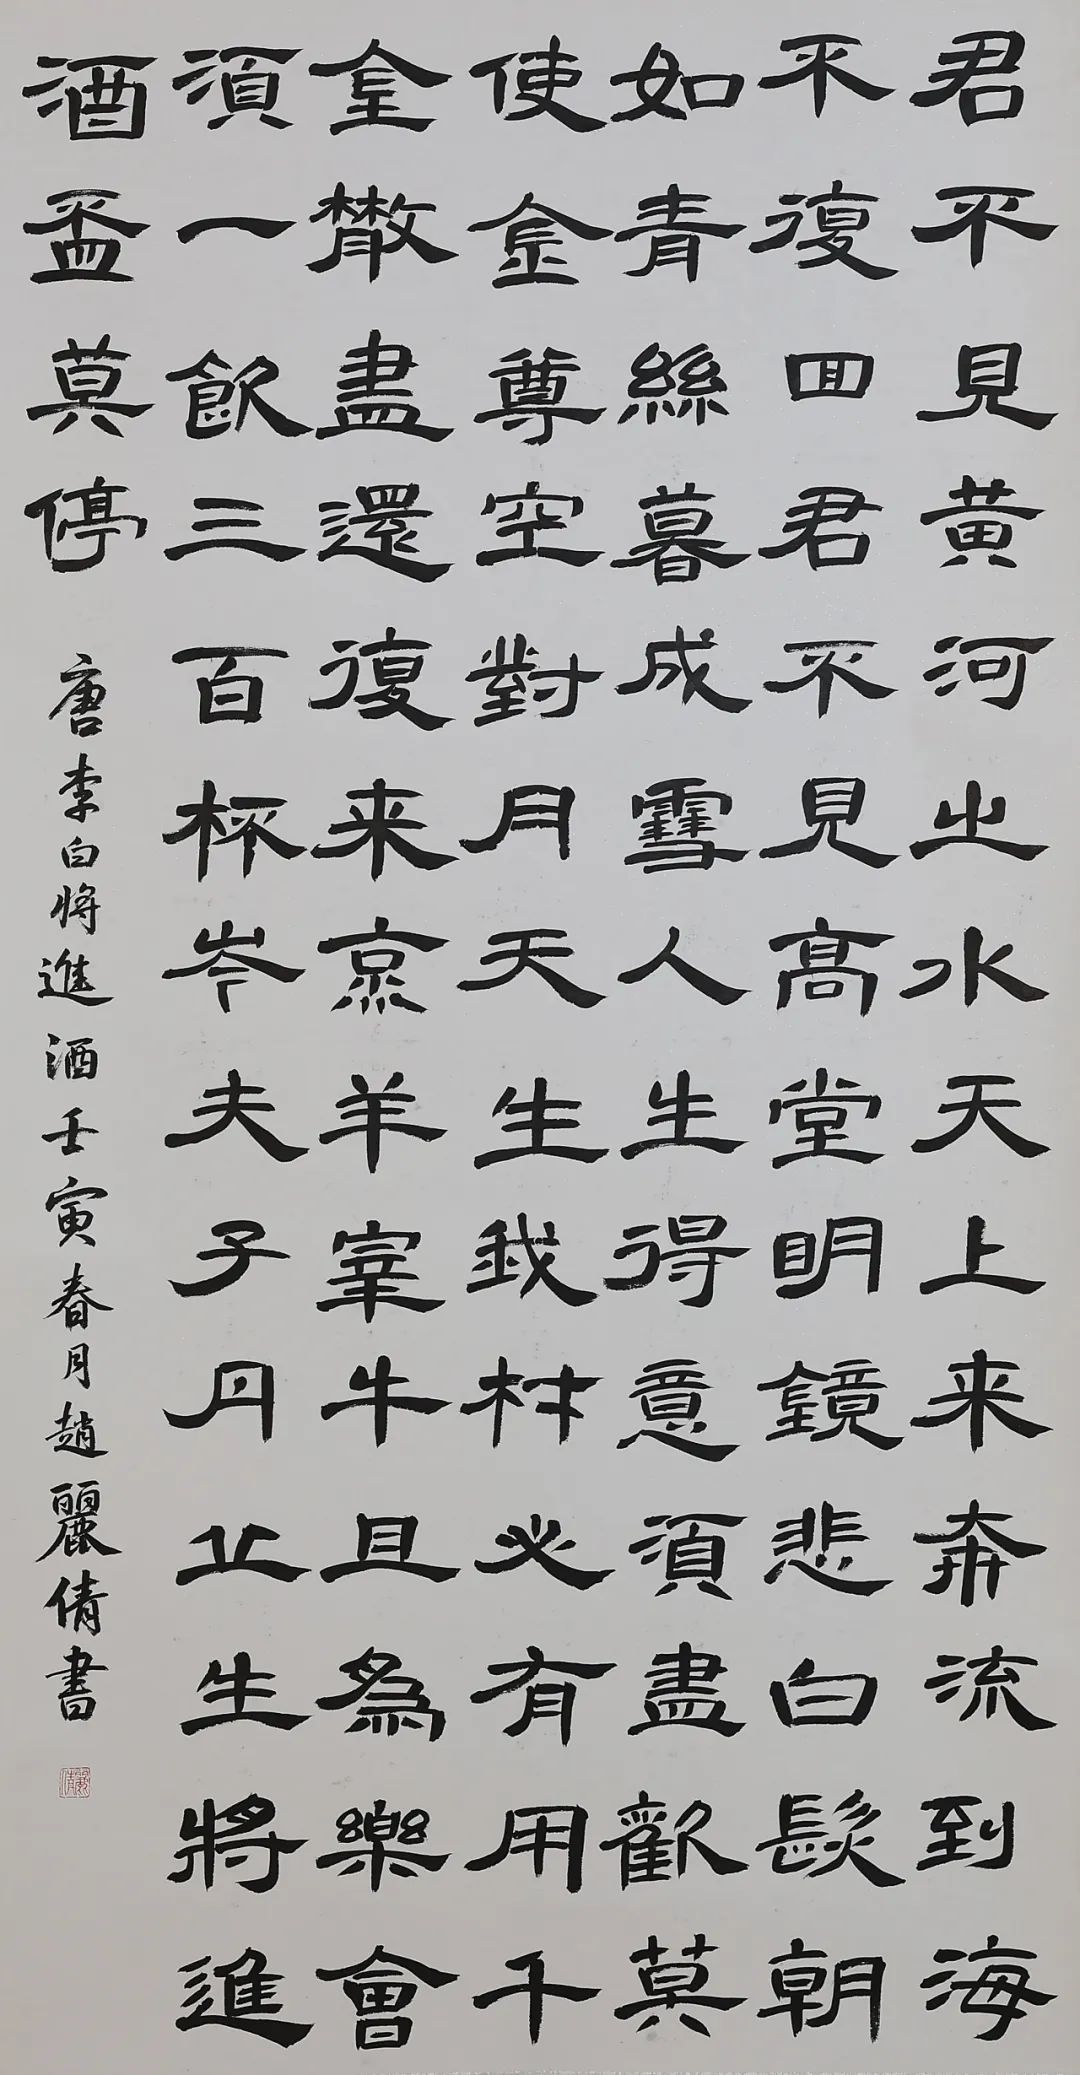 君不見黄河之水天上来奔流到海
不復回君不見高堂明鏡悲白髮朝
如青絲暮成雪人生得意須盡歡莫
使金尊空對月天生我材必有用千
金散盡還復来烹羊宰牛且為樂會
須一飲三百杯岑夫子丹丘生將進
酒盃莫停
唐李白將進酒壬寅春月趙麗倩書